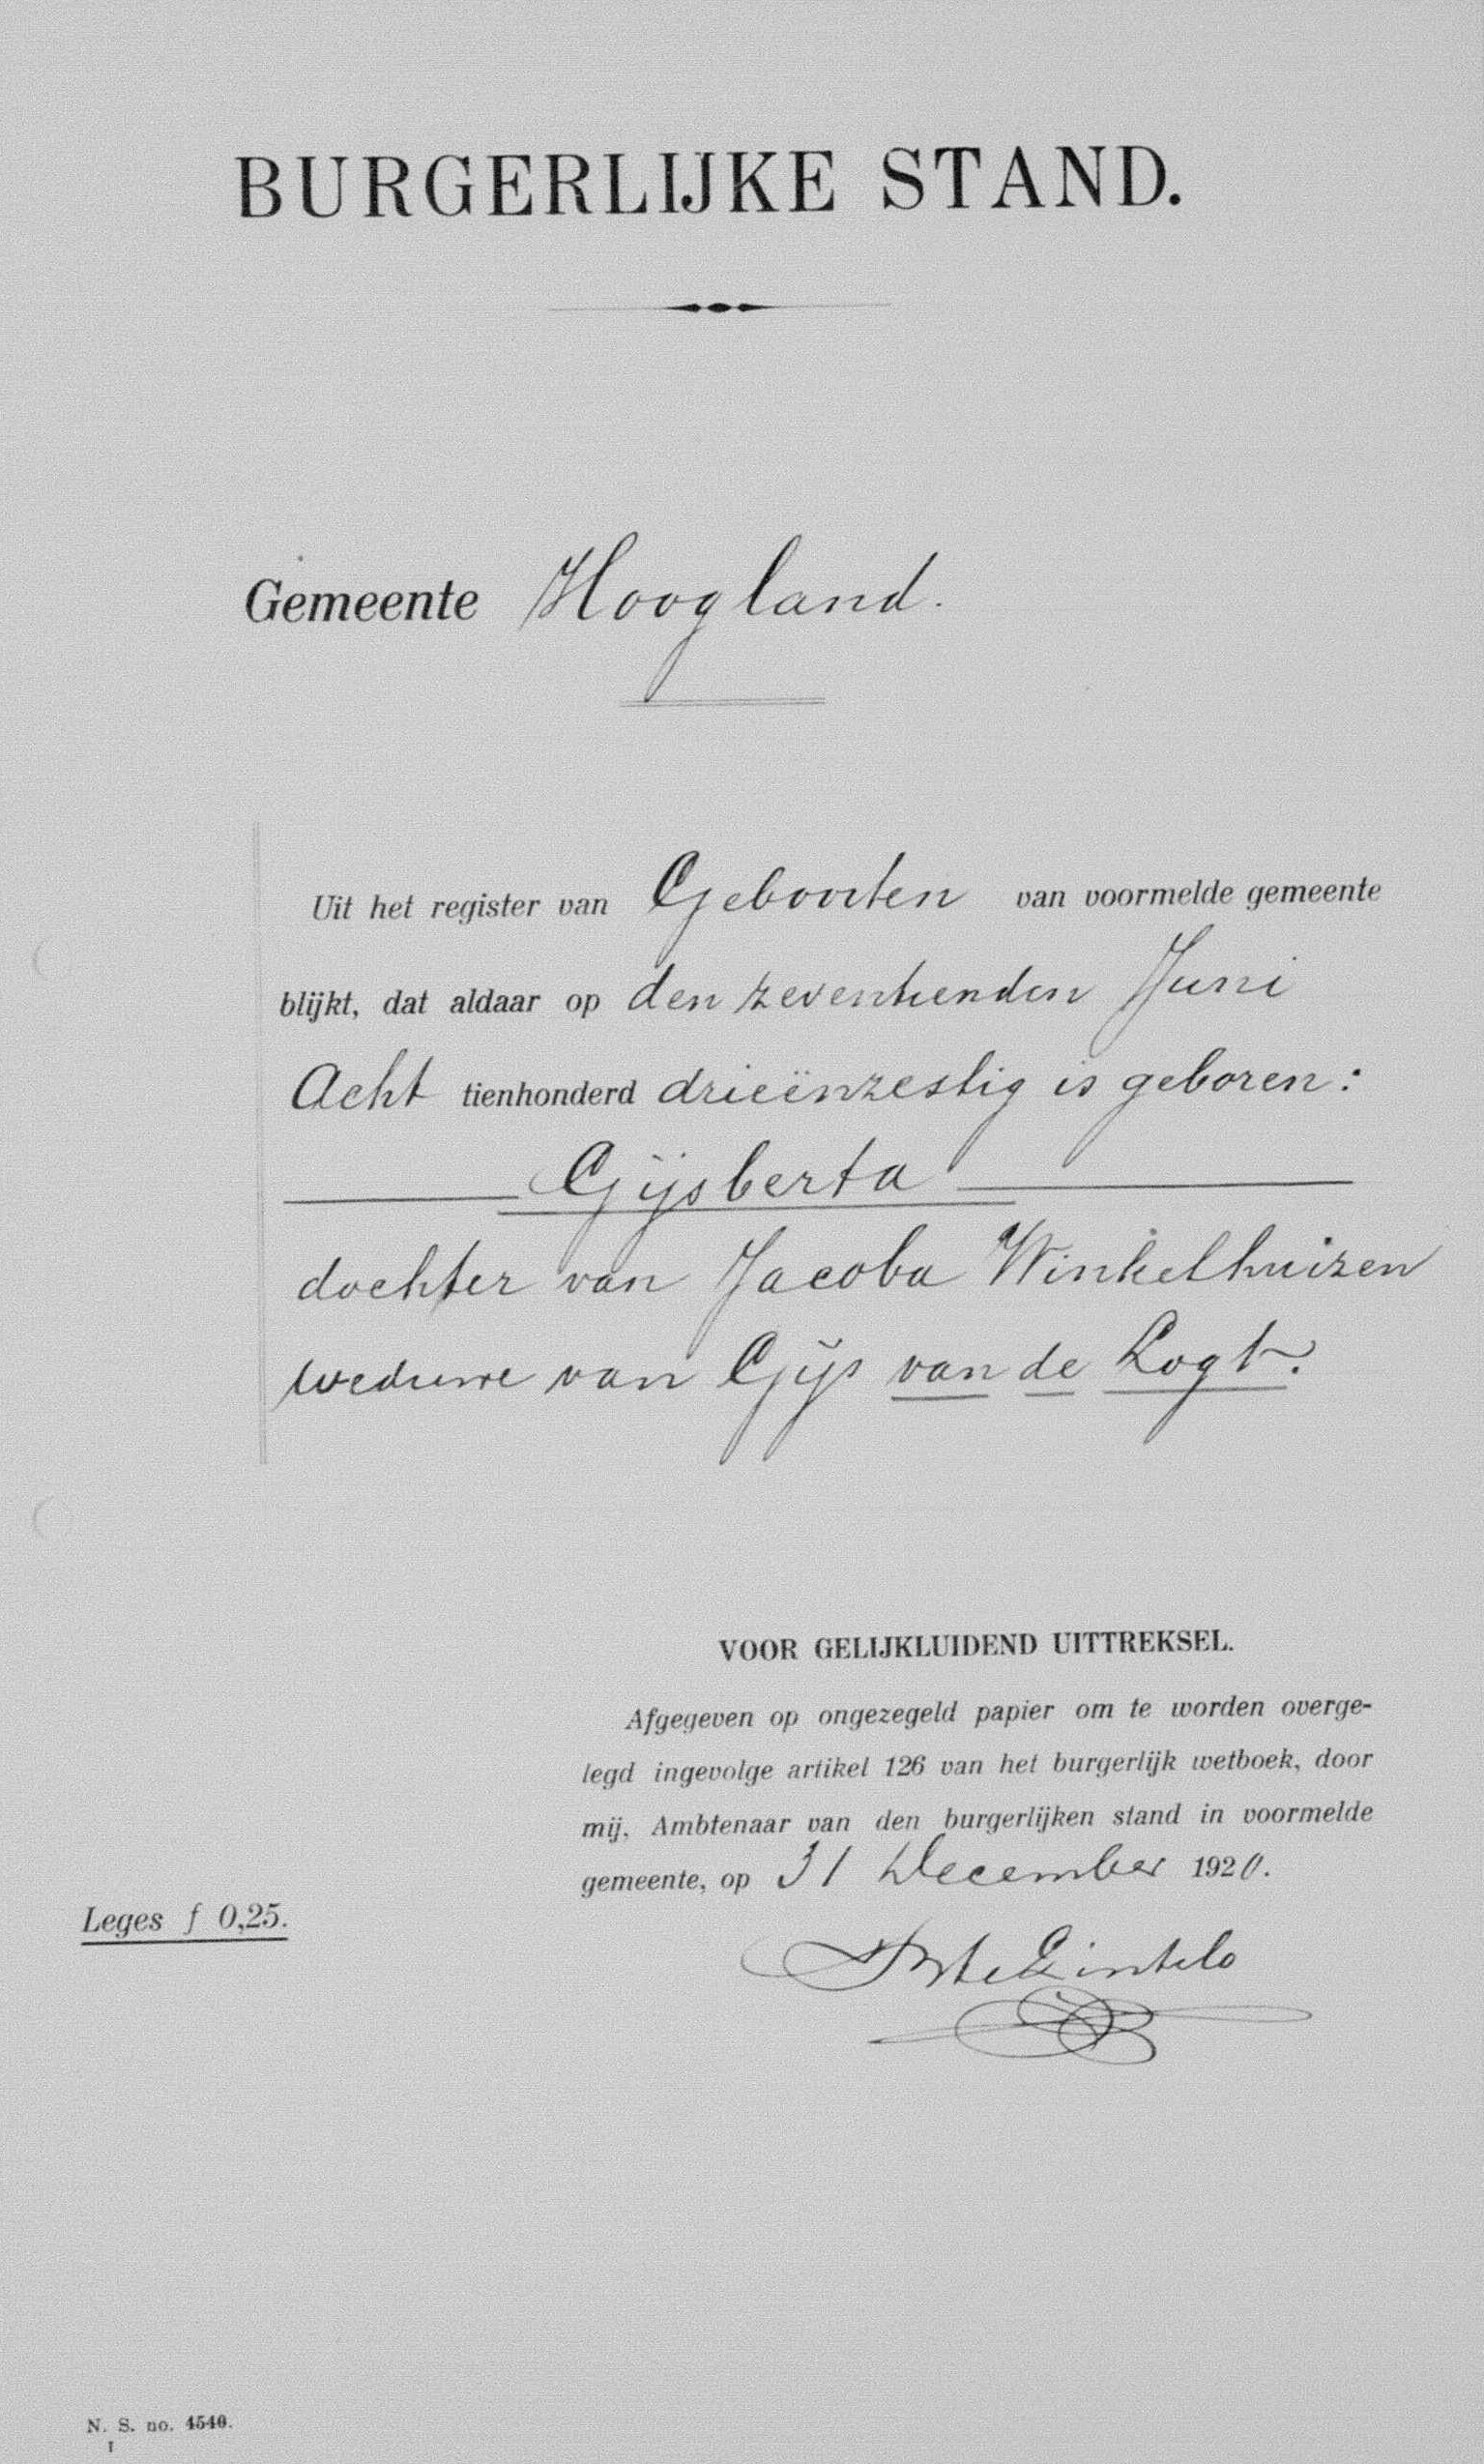 BURGERLIJKE STAND.
Gemeente Hoogland.
Uit het register van Geboorten van voormelde gemeente
blijkt, dat aldaar op den zeventienden Juni
Acht tienhonderd drieënzestig is geboren:
Gijsberta
dochter van Jacoba Winkelhuizen
weduwe van Gijs van de Logt.
VOOR GELIJKLUIDEND UITTREKSEL.
Afgegeven op ongezegeld papier om te worden overge-
legd ingevolge artikel 126 van het burgerlijk wetboek, door
mij, Ambtenaar van den burgerlijken stand in voormelde
gemeente, op 31 December 1920.
Leges f 0,25.
N. S. no. 4540.
I